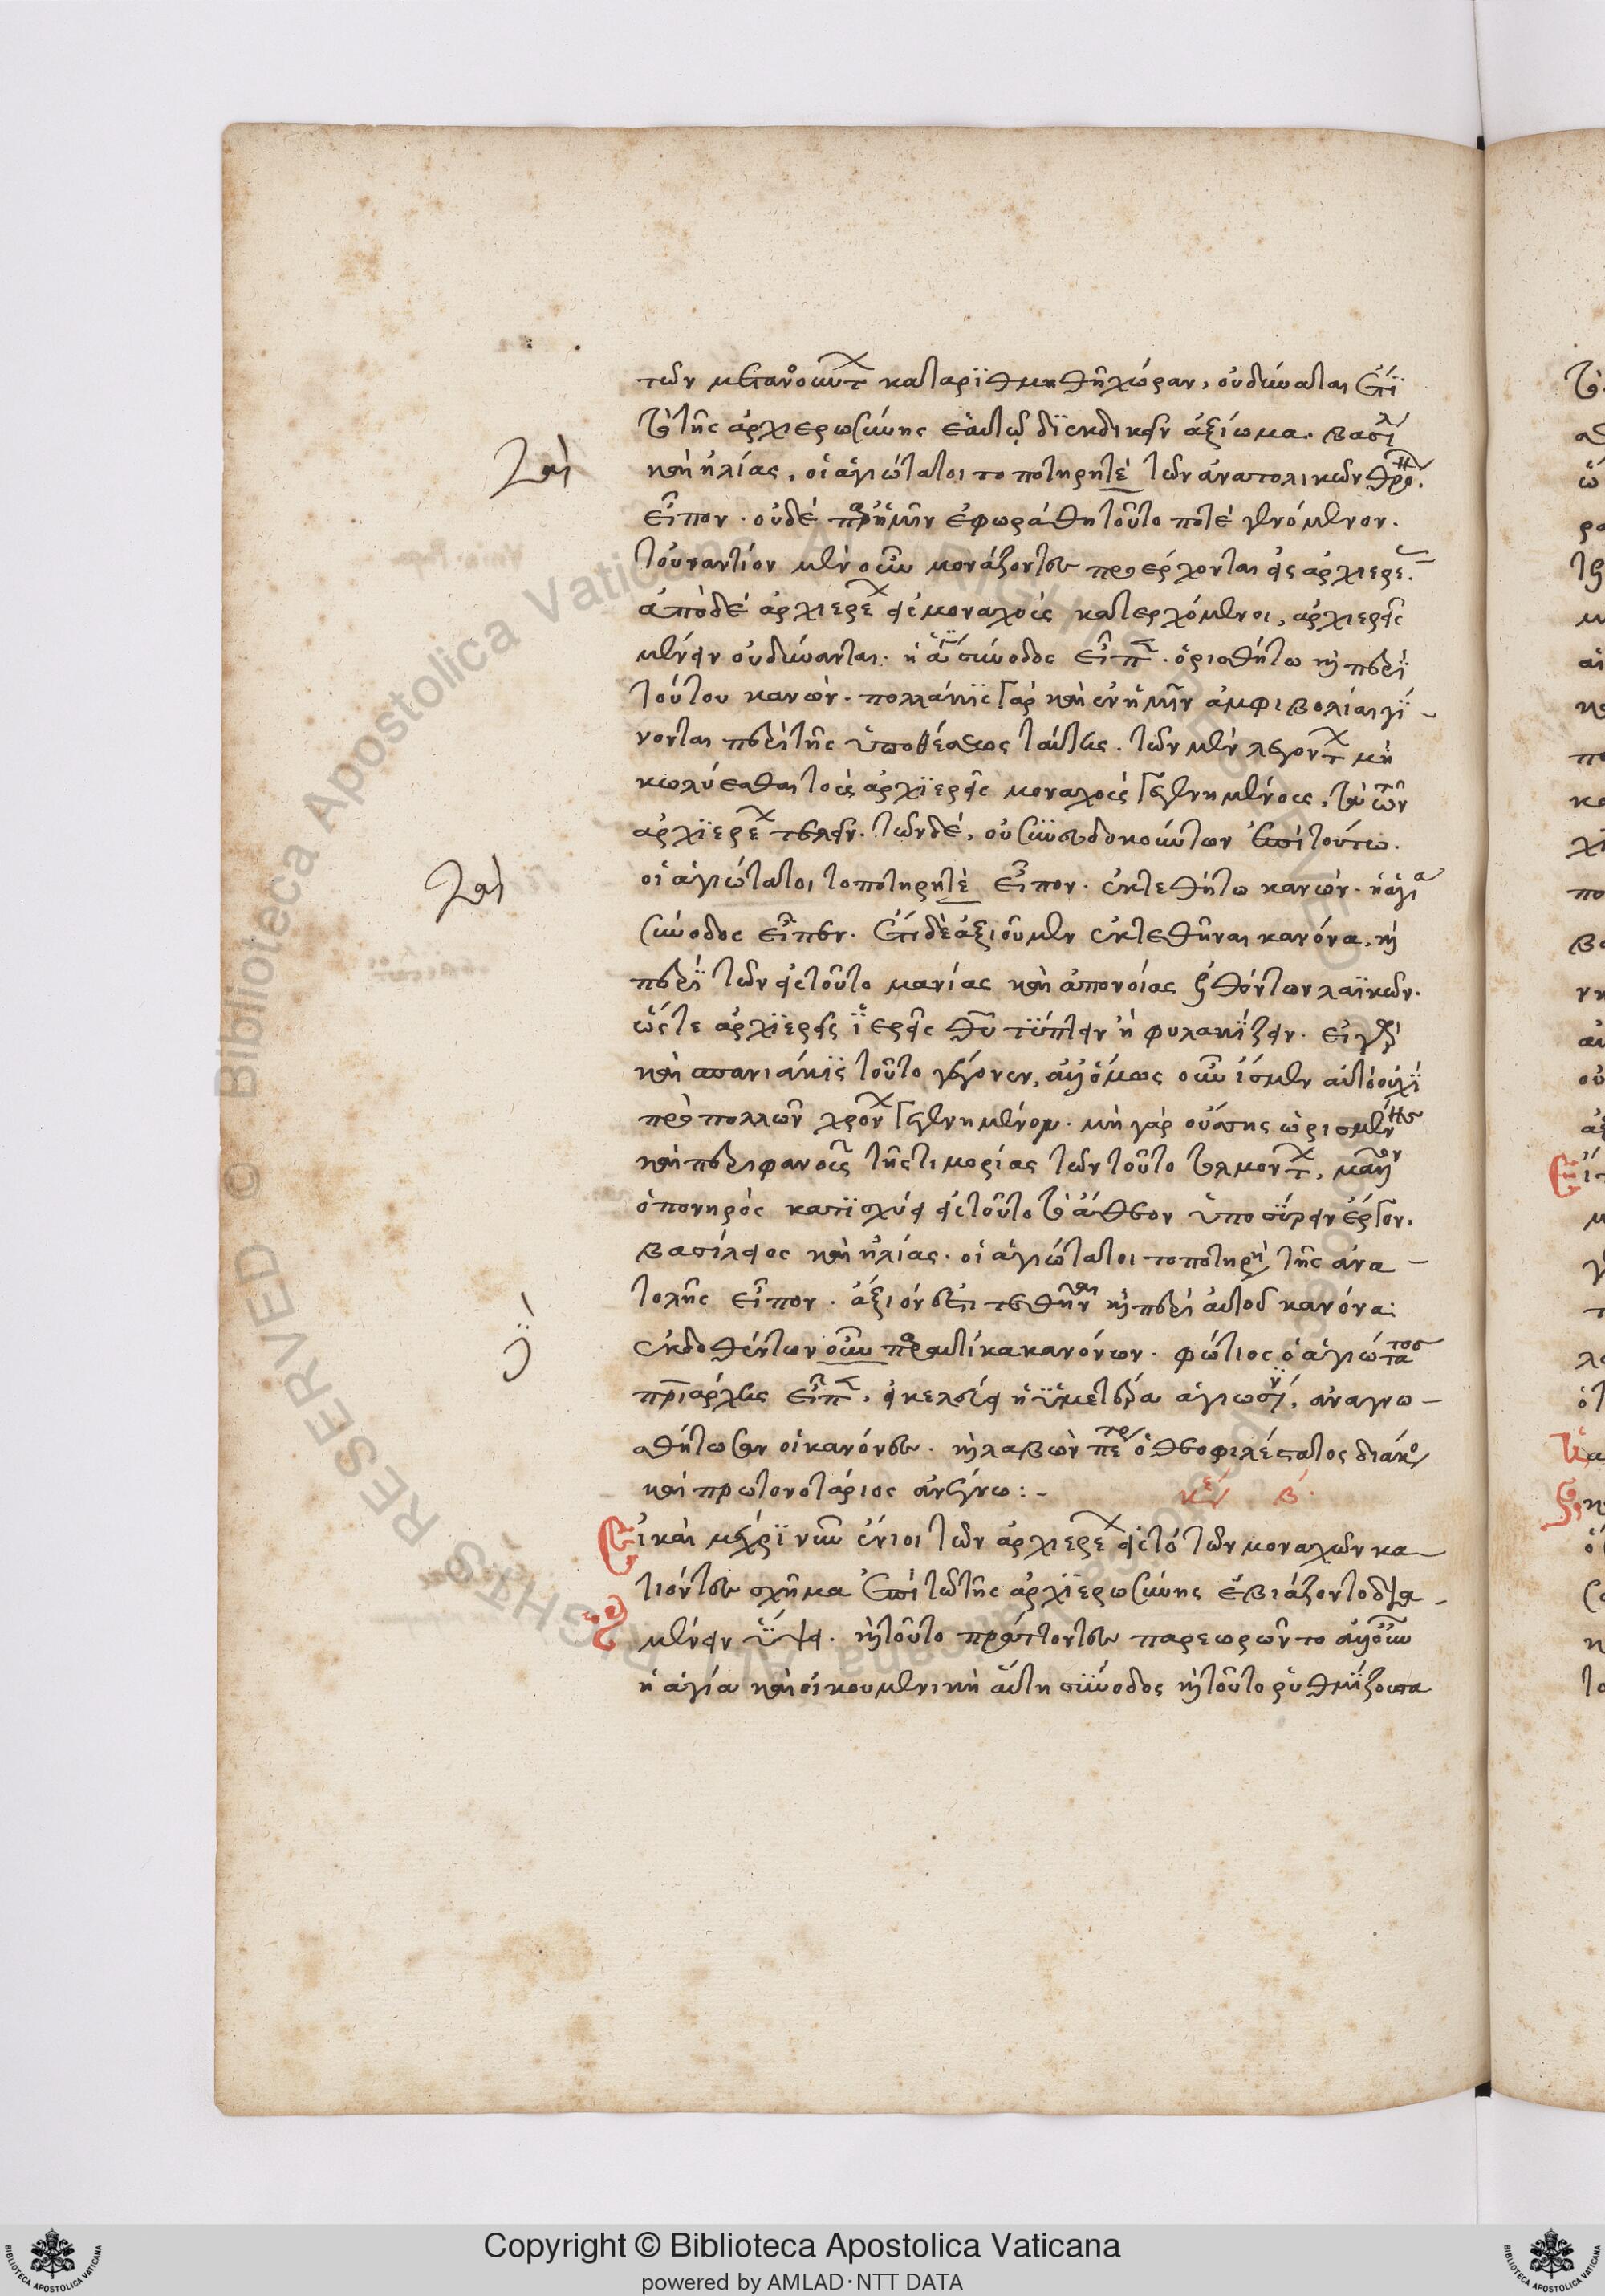 τῶν μετανοούντ καταριθμηθῇ χώραν, οὐ δύναται ἔτι
τὸ τῆς ἀρχιερωσύνης ἑαυτῷ διεκδικεῖν ἀξίωμα. βασίλ
καὶ ἠλίας, οἱ ἁγιώτατοι τοποτηρητὲ τῶν ἀνατολικῶν θρό.
εἶπον. οὐδὲ παρ' ἡμῖν ἐφωράθη τοῦτο ποτὲ γενόμενον.
τοὐναντίον μὲν οὖν μονάζοντες προέρχονται εἰς ἀρχιερε.
ἀπὸ δὲ ἀρχιερέ εἰς μοναχοὺς κατερχόμενοι, ἀρχιερεῖς
μένειν οὐ δύνανται. ἡ ἁ σύνοδος εἶπ. ὁρισθήτω καὶ περὶ
τούτου κανών. πολλάκις γὰρ καὶ ἐν ἡμῖν ἀμφιβολίαι γί-
νονται περὶ τῆς ὑποθέσεως ταύτης. τῶν μὲν λεγόντ μὴ
κωλύεσθαι τοὺς ἀρχιερεῖς μοναχοὺς γεγενημένους, τὰ τῶν
ἀρχιερέ τελεῖν. τῶν δὲ, οὐ συνευδοκούντων ἐπὶ τούτω.
οἱ ἁγιώτατοι τοποτηρητὲ εἶπον. ἐκτεθήτω κανών. ἡ ἁγία
σύνοδος εἶπεν. ἔτι δὲ ἀξιοῦμεν ἐκτεθῆναι κανόνα, καὶ
περὶ τῶν εἰς τοῦτο μανίας καὶ ἀπονοίας ἐλθόντων λαϊκῶν.
ὥστε ἀρχιερεῖς ἱερεῖς θῦ τύπτειν ἢ φυλακίζειν. εἰ γὰρ
καὶ σπανιάκις τοῦτο γέγονεν, ἀλλ' ὅμως οὖν ἴσμεν αὐτὸ οὐχὶ
πρὸ πολλῶν χρόν γεγενημένον. μὴ γὰρ οὔσης ὡρισμένης
καὶ περιφανοῦς τῆς τιμορίας τῶν τοῦτο τολμόντ, μᾶλλον
ὁ πονηρὸς κατισχύει εἰς τοῦτο τὸ ἄθεον ὑποσύρειν ἔργον.
βασίλειος καὶ ἠλίας. οἱ ἁγιώτατοι τοποτηρη τῆς ἀνα-
τολῆς εἶπον. ἄξιόν ἐστι τεθῆναι καὶ περὶ αὐτοῦ κανόνα:
ἐκδοθέντων οὖν παραυτίκα κανόνων. φώτιος ὁ ἁγιώτατος
πριάρχης εἶπ. εἰ κελεύει ἡ ὑμετέρα ἁγιωσύ, ἀναγνω-
σθήτωσαν οἱ κανόνες. καὶ λαβὼν πέτρ ὁ θεοφιλέστατος διάκο
καὶ πρωτονοτάριος ἀνέγνω:-
κε β.
Εἰ καὶ μέχρι νῦν ἔνιοι τῶν ἀρχιερέ εἰς τὸ τῶν μοναχῶν κα-
τιόντες σχῆμα ἐπὶ τῶ τῆς ἀρχιερωσύνης ἐβιάζοντο δια-
μένειν ὕψει. καὶ τοῦτο πράττοντες παρεωρῶντο ἀλλ' οὖν
ἡ ἁγία καὶ οἰκουμενικὴ αὕτη σύνοδος καὶ τοῦτο ῥυθμίζουσα